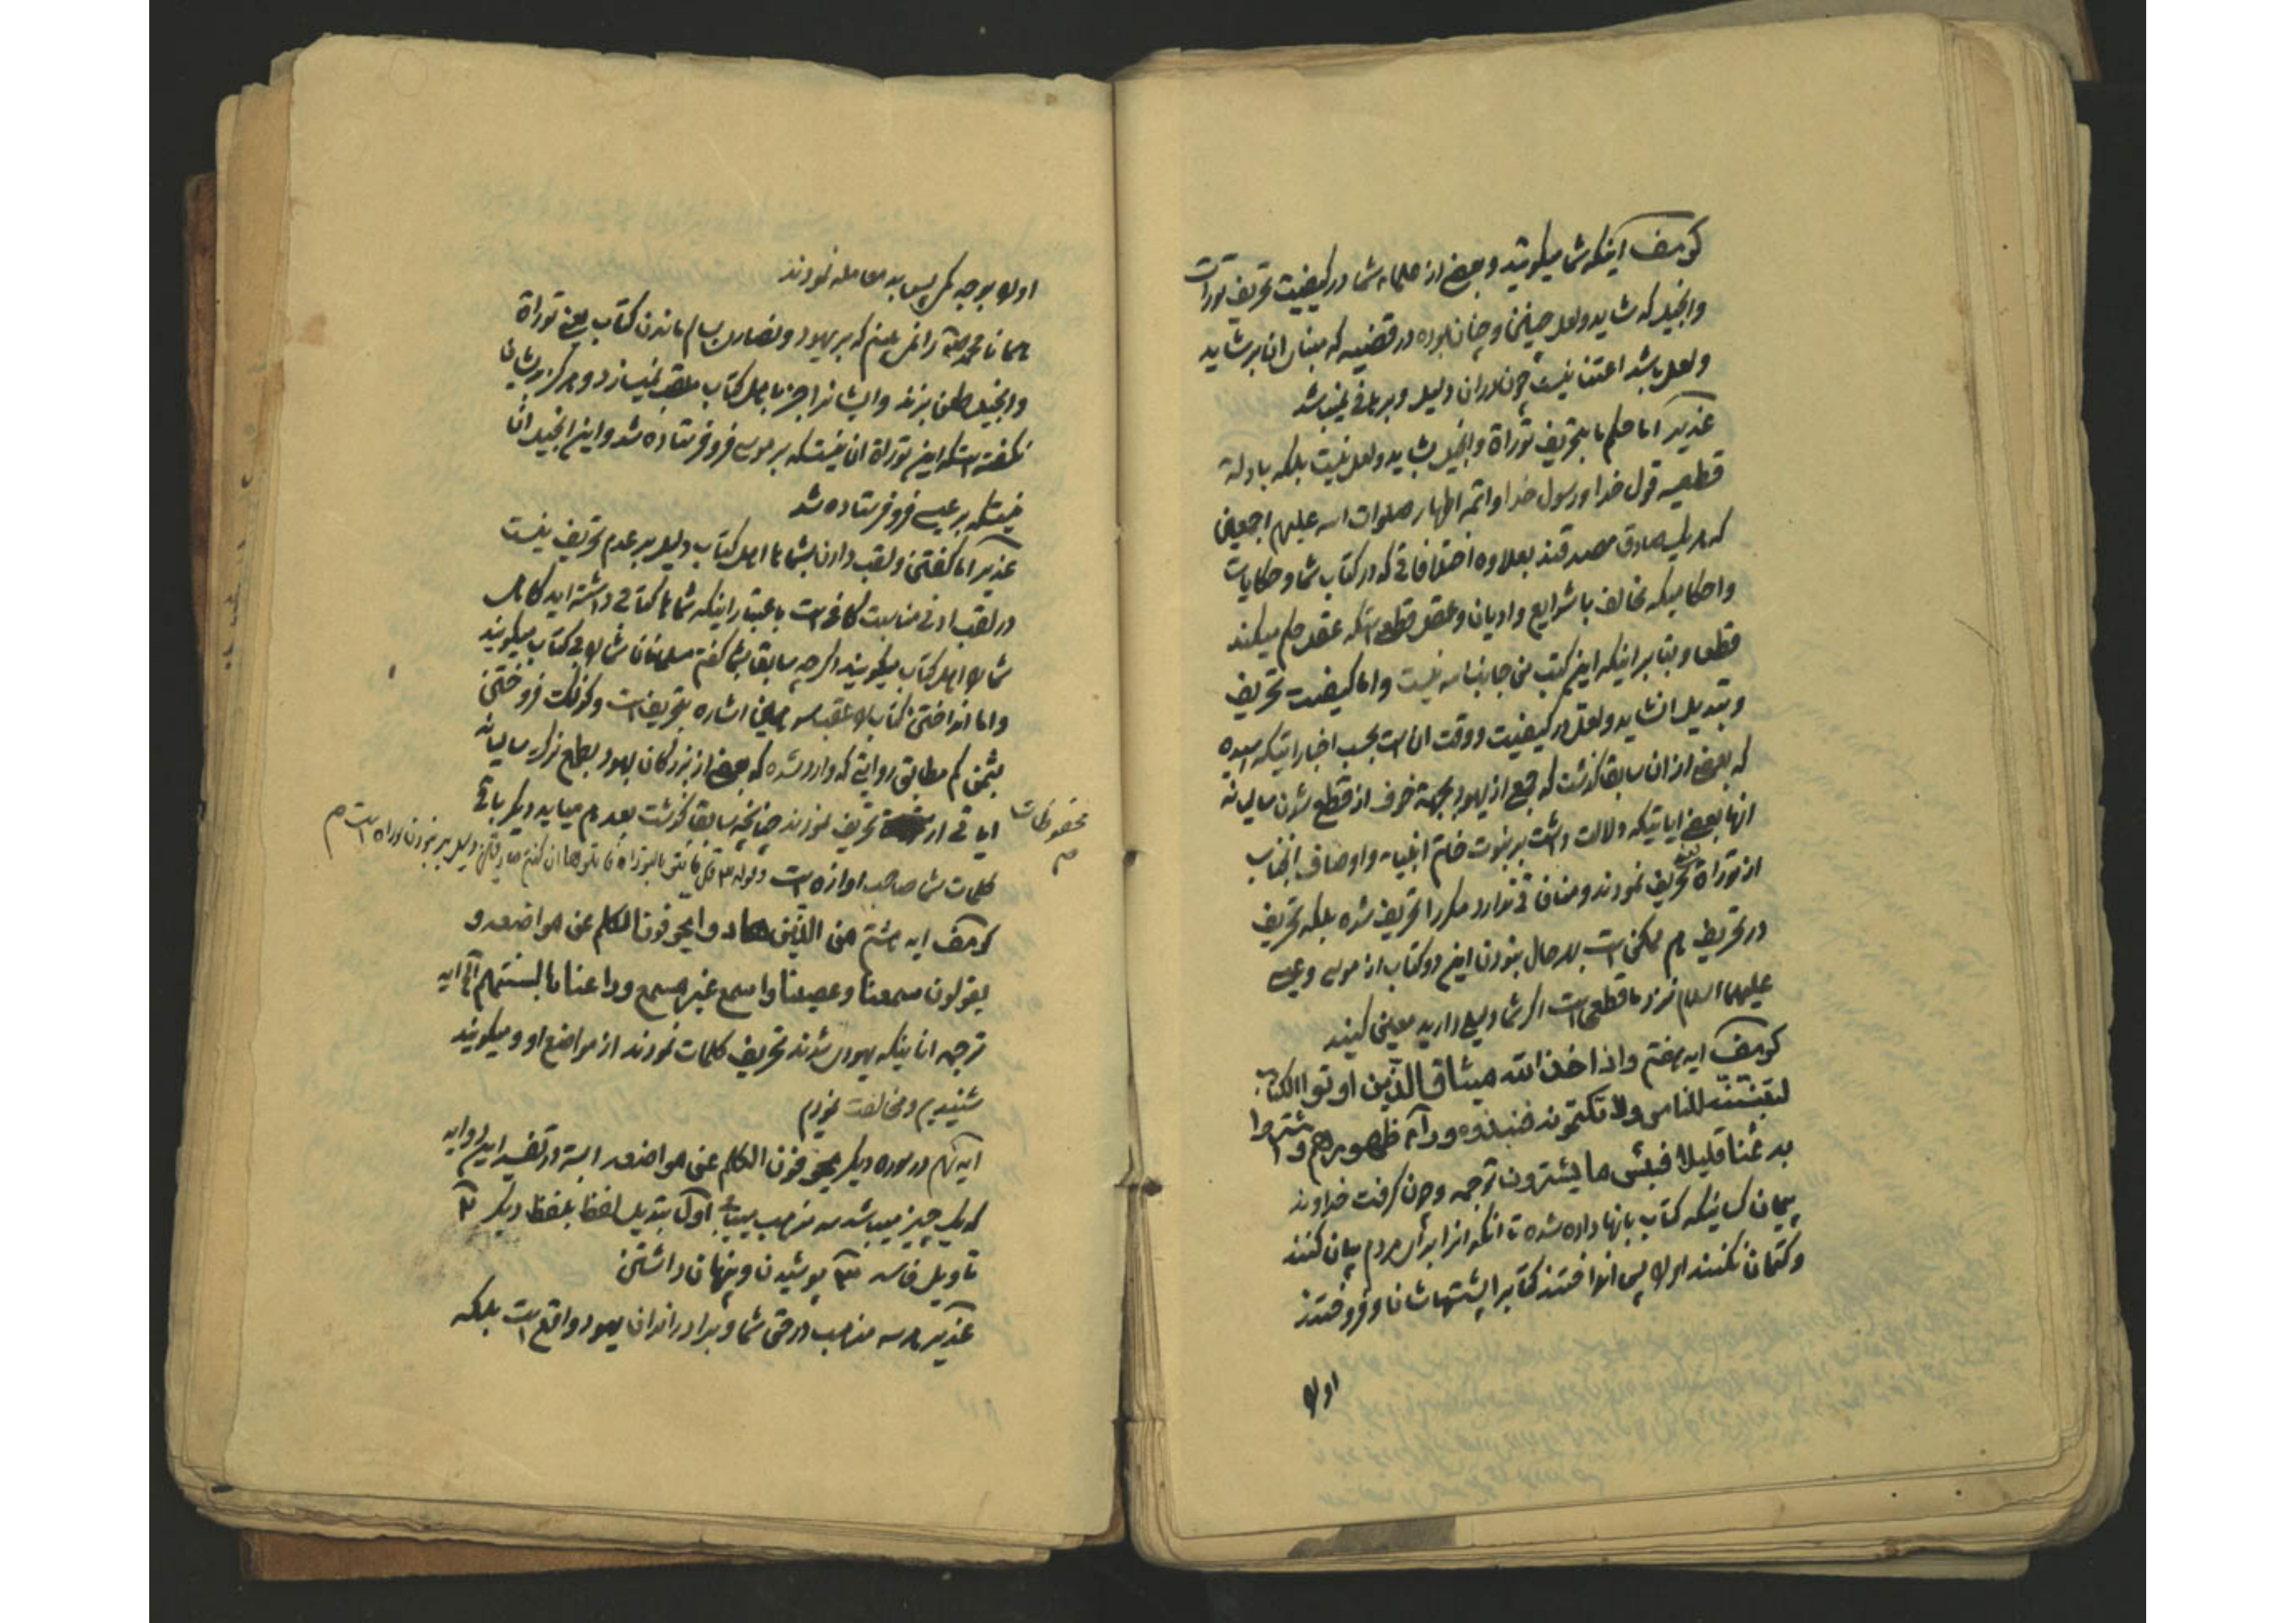 کومف اینکه شما میکوئید و بعضی از علماء شما در کیفییت تحریف تورات
وانجیل که شاید ولعل چنین و چنان بوده در قضیه که مبنای ان بر شاید
ولعل باشد اعتنا نیست چون در ان دلیل و برهانی نمیباشد
غدیر اما حکم ما بتحریف توراة وانجیل بشاید ولعل نیست بلکه بادلۀ
قطعیه قول خدا ورسول خدا وائمه اطهار صلوات اسه علیهم اجمعین
که هر یک صادق مصدقند بعلاوه اختلافاتی که در کتاب شما وحکایات
واحکامیکه مخالف با شرایع وادیان وعقل قطعی استکه عقل حکم میکند
قطعا وبنا بر اینکه این کتب من جانب اسه نیست واما کیفیت تحریف
وتبدیل ان شاید ولعل در کیفیت ووقت ان است بحسب اخباراتیکه رسیده
که بعضی از ان سابقا کذشت که جمع از یهود بجهة خوف از قطع شدن سالیانه
انها بعضی ایاتیکه دلالت داشت بر نبوت خاتم انبیاء واوصاف انجناب
از توراة تحریف نمودند ومنافاتی ندارد مکررا تحریف شده بلکه تحریف
در تحریف هم ممکن است بهر حال نبودن این دو کتاب از موسی وعیسی
علیهما السلام نزد ما قطعی است اکر شما دلیلی دارید معین کنید
کومف ایه هفتم واذ اخذ الله میثاق الذین اوتوا الکتاب
لتبیننه للناس ولا تکتمونه فنبذوه ورآء ظهورهم واشتروا
به ثمنا قلیلا فبئس ما یشترون ترجمه وچون کرفت خداوند
پیمان کسانیکه کتاب بانها داده شده تا انکه انرا برای مردم بیان کنند
وکتمان نکنند اورا پس انداختند کتابرا پشتهاشان وفروختند
اورا
اورا بوجه کم پس بد معامله نمودند
همانا محمد را نمی بینم که بر یهود ونصاری بسالم ماندن کتاب یعنی توراة
وانجیل طعن بزند وایشانرا جز باهل کتاب ملقب نمیسازد وهرکز بدیشان
نکفته استکه این توراة ان نیستکه بر موسی فرو فرستاده شد واین انجیل ان
نیستکه بر عیسی فرو فرستاده شد
غدیر اما کفتن ولقب دادن بشماها اهل کتاب دلیل بر عدم تحریف نیست
در لقب ادنی مناسبت کافی است باعتبار اینکه شماها کتابی داشته اید کاهی
شما را اهل کتاب میکویند واکرچه سابقا بشما کفتم مسلمانان شما را بی کتاب میکویند
واما انداختن کتاب را عقب سر همین اشاره بتحریف است وکذلک فروختن
بثمن کم مطابق روایتی که وارد شده که بعضی از بزرکان یهود بطمع سالیانه
ایاتی از تحریف نمودند چنانچه سابقا کذشت بعد هم میاید دیکر باقی
محفوظات
م
کلمات شما صاحب اوازه است وقوله تع قل فاتوا بالتوراة فاتلوها ان کنتم صادقین دلیل بر نبودن توراة است م
کومف ایه هشتم من الذین هادوا یحرفون الکلم عن مواضعه و
یقولون سمعنا وعصینا واسمع غیر مسمع وراعنا لیا بالسنتهم الی ایه
ترجمه انانیکه یهودی شدند تحریف کلمات نمودند از مواضع او ومیکویند
شنیدیم ومخالفت نمودیم
ایه نهم در سوره دیکر یحرفون الکلم عن مواضعه البته در تفسیر این دو ایه
که یک چیز میباشد سه مذهب میباشد اول تبدیل لفظ بلفظ دیکر ۲
تاویل فاسد ۳ پوشیدن وپنهان داشتن
غدیر هر سه مذاهب در حق شما وبرادرانتان یهود واقع است بلکه